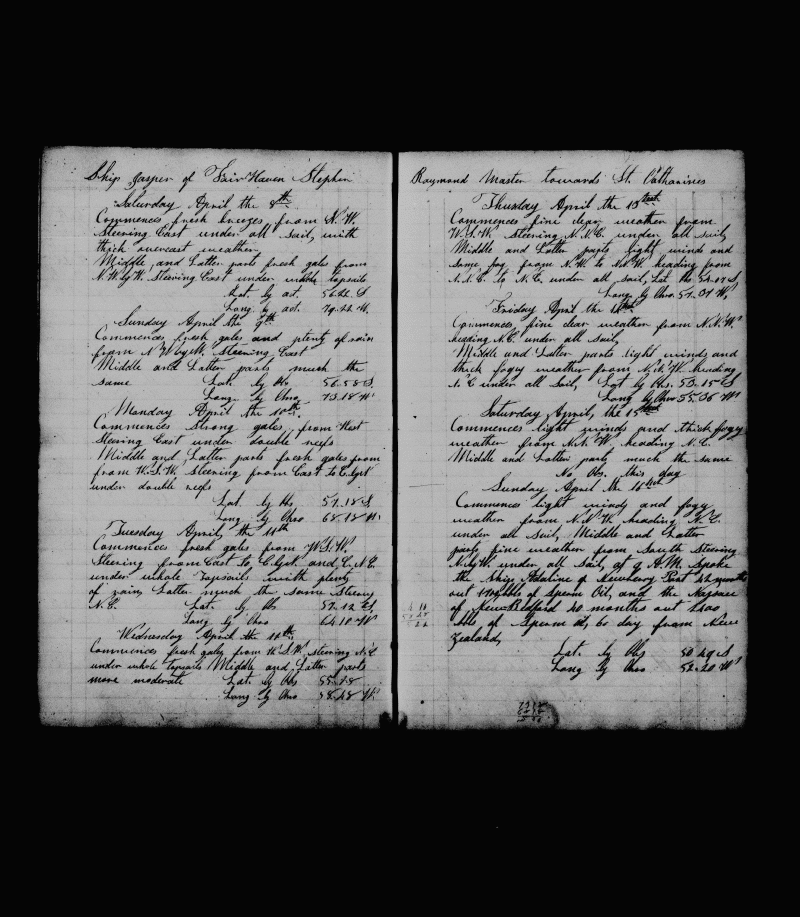 Ship Jasper of Fair Haven Stephen
Saturday April the 8th
Commences fresh breezes from N.W.
Steering East under all sail, with
thick overcast weather
Middle and Latter parts fresh gales from
N.W.byW. Steering East under whole topsails
Lat. by act. 56.22 S
Long. by act. 79.22 W.
Sunday April the 9th
Commences fresh gales and plenty of rain
from N.W.byW. Steering East
Middle and Latter parts much the
same Lat. by Obs 56.58 S.
Long. by Chro 73.18 W.
Monday April the 10th
Commences strong gales from West
Steering East under double reefs
Middle and Latter parts fresh gales from
from W.S.W. Steering from East to E.byS
under double reefs
Lat. by Obs 57.18 S.
Long by Chro 68.18 W.
Tuesday April, the 11th
Commences fresh gales from W.S.W.
Steering from East to E.byN. and E.N.E.
under whole Topsails with plenty
of rain Latter much the same Steering
N.E. Lat. by Obs 57.12 S.
Long by Chro 64.10 W
Wednesday April the 11th
Commences fresh gales from W.S.W. steering N.E
under whole Topsails Middle and Latter parts
more moderate Lat. by Obs 55.18
Long by Chro 58.48 W.
Raymond Master towards St. Catharines
Thursday April the 13th
Commences fine clear weather from
W.S.W. Steering N.N.E. under all sail,
Middle and Latter parts light winds and
some fog from N.W. to N.N.W. heading from
N.N.E. to N.E. under all sail, Lat Obs 54.17 S,
Long by Chro. 57.37 W,
Friday April the 14th
Commences fine clear weather from N.N.W.
heading N.E. under all sail,
Middle and Latter parts light winds and
thick fogy weather from N.N.W. heading
N.E under all sail, Lat by Obs. 53.15 S
Long by Chro 55.36 W
Saturday April, the 15th
Commences light winds and thick fogy
weather from N.N.W. heading N.E.
Middle and Latter parts much the same
No Obs. this day
Sunday April the 16th
Commences light winds and fogy
weather from N.N.W. heading N.E.
under all sail, Middle and Latter
parts fine weather from South Steering
N.byW. under all sail, at 9 A.M. Spoke
the Ship Adaline of Newberry Port 22 months
out bbls of Sperm Oil, and the Nassau
of New Bedford 20 months out
bbls of Sperm oil, 60 day from New
Zealand,
Lat. by Obs 50 29 S
Long by Chro 52.20 W